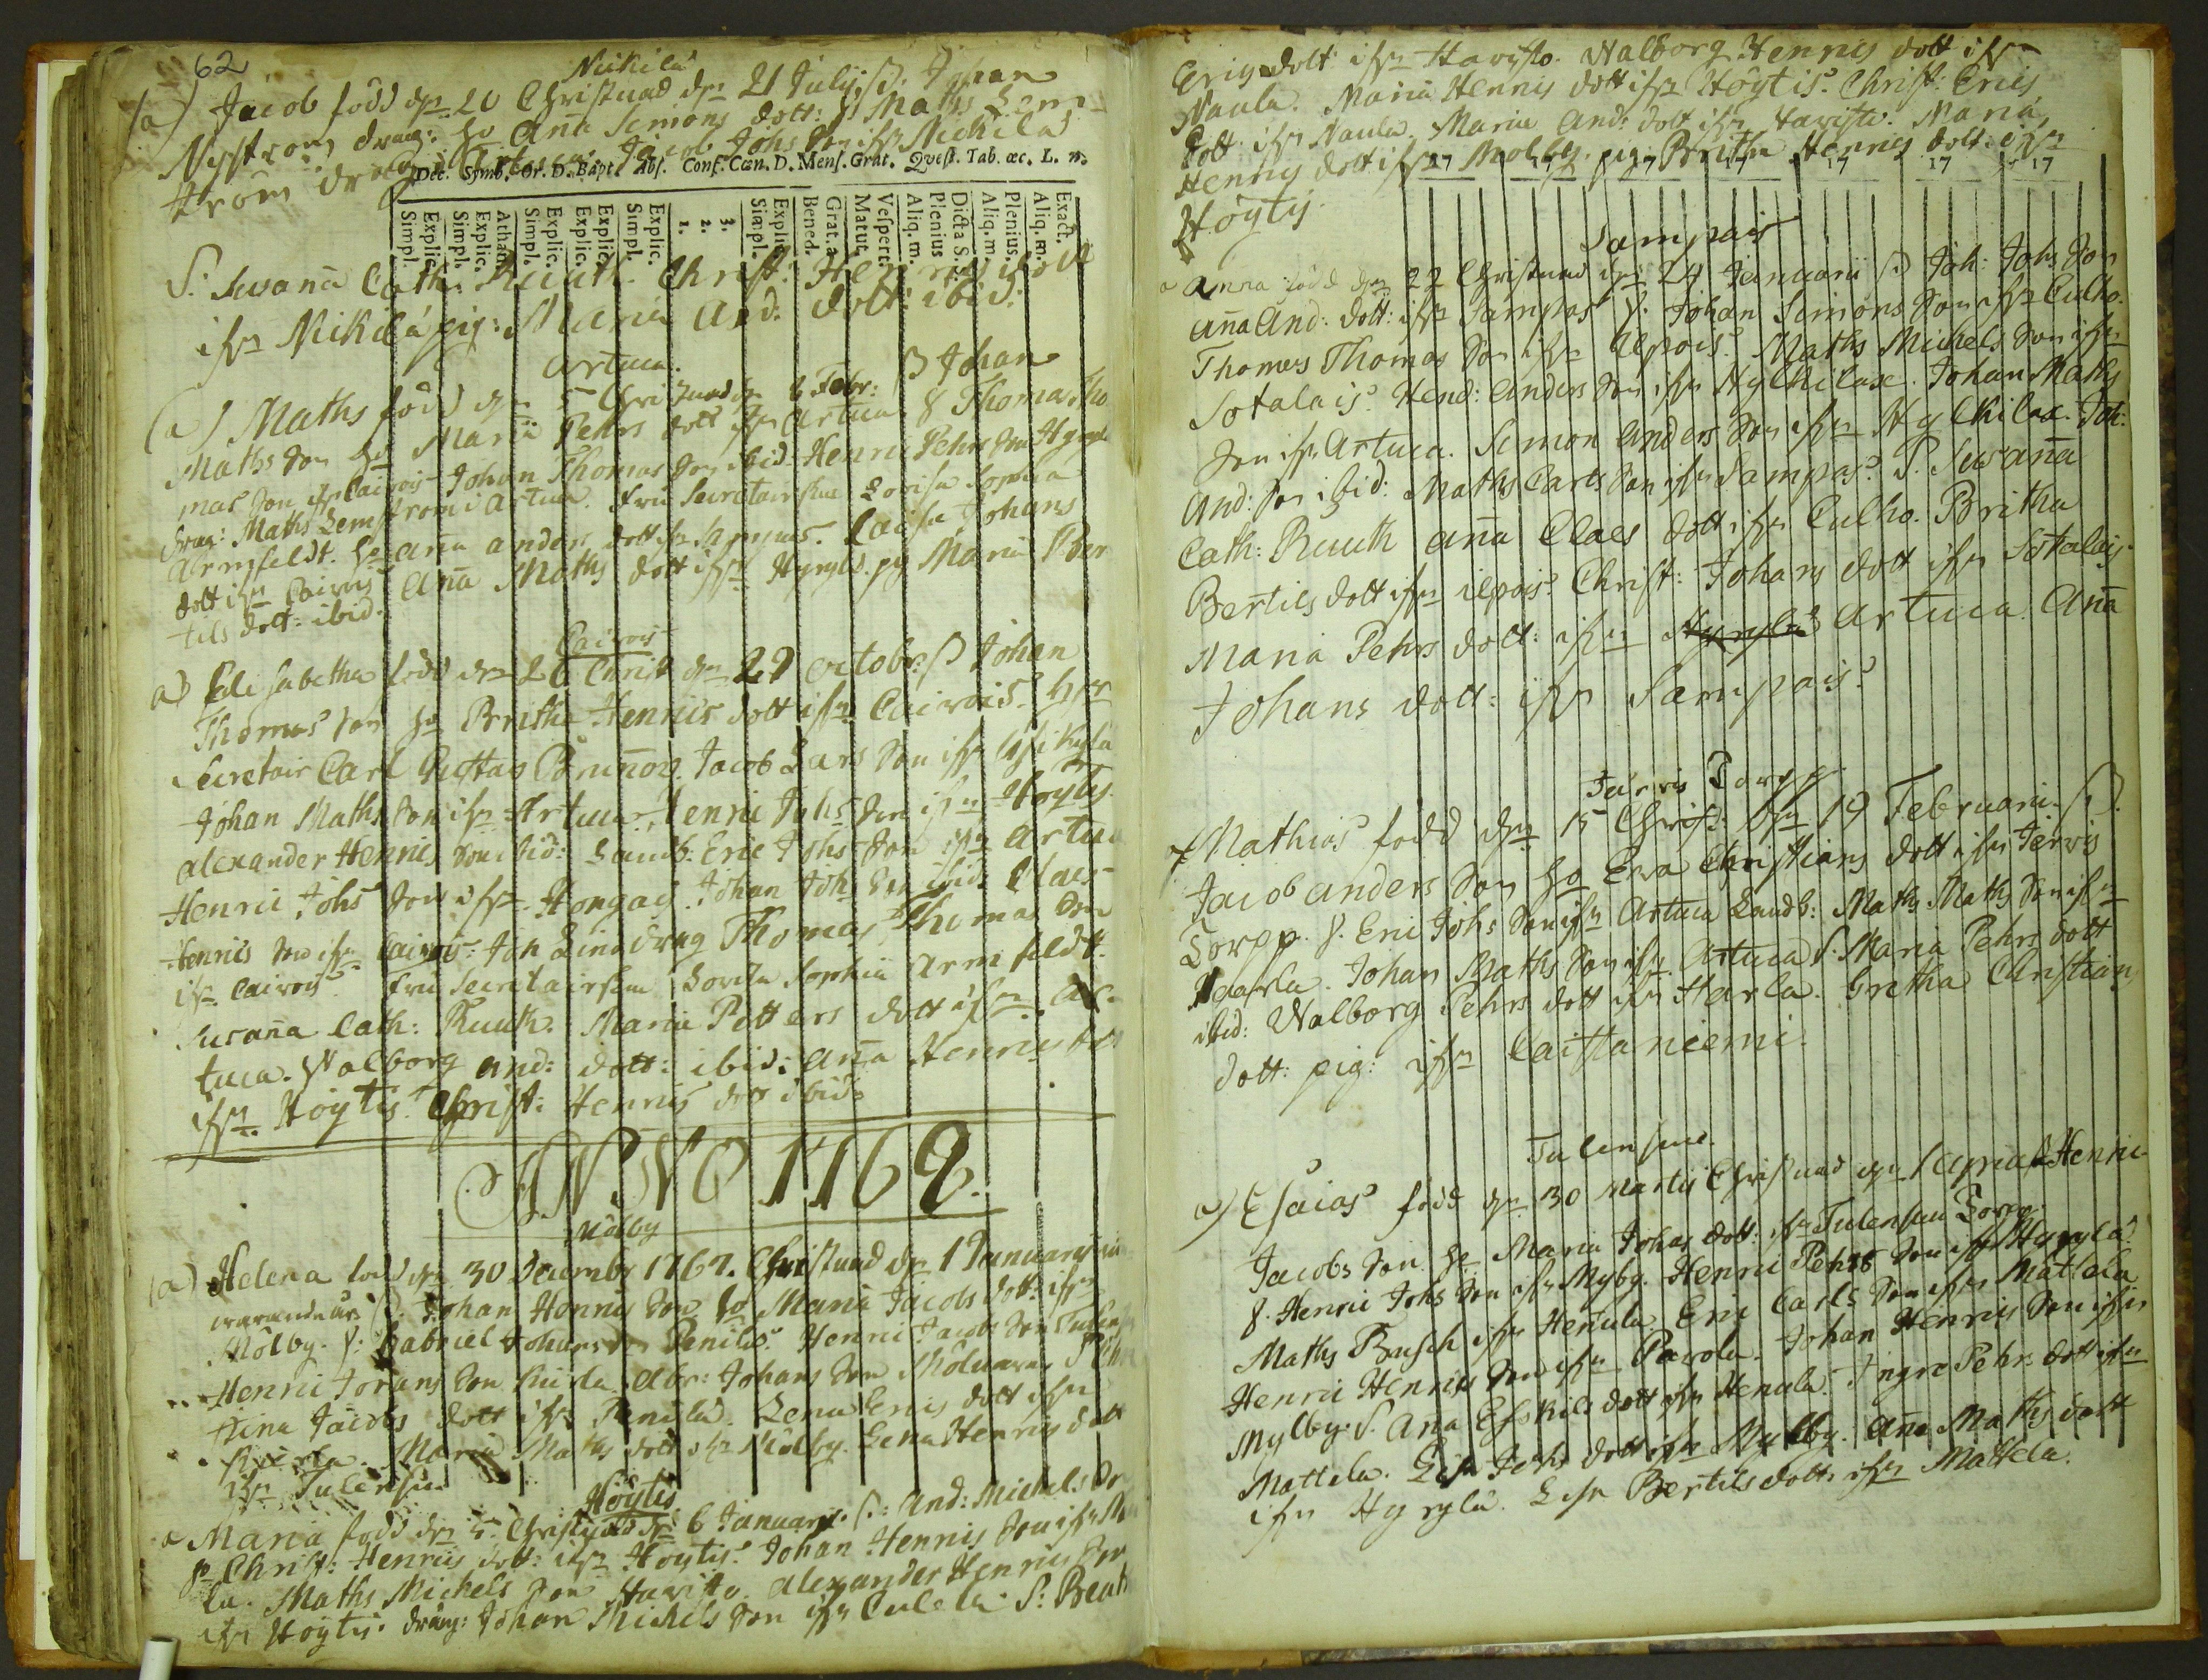 62
Nickilä
(a) Jacob född dn 20 Christnad dn 21 Julij, P. Johan
Nyström drag: ho Anna Simons dott: S. Maths Lem-
ström drag: Jacob Johs Son ifrn Nickilä
Dec. Symb. Or. D. Bapt. Abs. Conf. Cœn. D. Mens. Grat. Quest. Tab. œc. L. n.
Simpl.
Explic.
Simpl.
Explic.
Athan.
Simpl.
Explic.
Explic.
Explic.
Simpl.
Explic.
1.
2.
3.
Simpl.
Explic.
Bened.
Grat. a.
Matut.
Vespert.
Aliq. m.
Plenius
Dicta S. S.
Aliq. m.
Plenius.
Aliq. m.
Exact.
S. Susanna Cath: Ruuth. Christ: Henrics dott
ifrn Nikilä pig: Maria And: dott: ibid:
Artuca.
(a) Maths född dn 5 Christnad dn 6 Febr: P Johan
Maths Son ho Maria Pehrs dott ifrn Artuca S Thomas Tho
mas Son ifrn Cairois Johan Thomas Son ibid. Henric Pehrs Son Hyryla
drag: Maths Lemström i Artuca. Fru Secretairskan Lovisa Sophia
Armfeldt. ho Anna Anders dott ifrn Sampais. Caisa Johans
dott ifrn Cairois Anna Maths dott ifrn Hyrylä. pg Maria Ber
tils dott: ibid.
Cairois
a) Elisabetha född dn 26 Christ dn 29 octobr: P Johan
Thomas Son ho Britha Henrics dott ifrn Cairois. S Hr
Secretair Carl Gustav Brunow. Jacob Lars Son ifrn
Johan Maths Son ifrn Artuca, Henric Johs Son ifrn Höytis.
Alexander Henrics Son ibid: Landb. Eric Johs Son ifrn Artuca
Henric Johs Son ifrn Hongais. Johan Joh: Son ibid: Claes
Henrics Son ifrn Cairois: Joh Lind drag Thomas Thomas Son
ifrn Cairois. Fru Secretairskan Lovisa Sophia Armfeldt.
Susanna Cath: Ruuth. Maria Petters dott ifrn Ar-
tuca. Walborg And: dott: ibid: Anna Henrics dott
ifrn Höytis. Christ: Henrics dott ibid.
ANNO 1768.
Mölby
(a) Helena född dn 30 Decembr 1767. Christnad dn 1 January
warande år. P. Johan Henrics Son ho Maria Jacobs dott ifrn
Mölby. S: Gabriel Johans Son Penilä. Henric Jacobs Son
Henric Jörans Son Abr: Johans Son
stina Jacobs dott ifrn Penilä. Lena Erics dott ifrn
Maria Maths dott ifrn Mölby. Lena Henrics dott
ifrn Tulensuu
Höytis.
a Maria född dn 5. Christnad dn 6 January. P: And: Michels Son
ho Christ: Henrics dott: ifrn Höytis. Johan Henrics Son ifrn
la. Maths Michels Son Haristo. Alexander Henrics Son
ifrn Höytis. dräng: Johan Michels Son ifrn S: Beat
Erics dott ifrn Haristo. Walborg Henrics dott ifrn
Naula. Maria Henrics dott ifrn Höytis. Christ: Erics
dott ifrn Naula. Maria And: dott ifrn Haristo. Maria
Henrics dott ifrn Mölby. pig: Britha Henrics dott: ifrn
17 17 17 17 17 17 17
Höytis.
Sampais
a Anna född dn 22 Christnad dn 24 Januarii P Joh: Johs Son
Anna And: dott: ifrn Sampais S: Johan Simons Son ifrn Culho.
Thomas Thomas Son ifrn Ilpois. Maths Michels Son ifrn
Sotalais. Hend: Anders Son ifrn Hylkilax. Johan Maths
Son ifrn Artuca. Simon Anders Son ifrn Hylkilax. Joh:
And: Son ibid: Maths Carls Son ifrn Sampais. S. Susanna
Cath: Ruuth Anna Claes dott ifrn Culho. Britha
Bertils dott ifrn ilpois. Christ: Johans dott ifrn Sotalais
Maria Pehrs dott: ifrn Hyrylä Artuca. Anna
Johans dott: ifrn Sampais.
Järvis Torpp
Mathias född dn 15 Christ: dn 19 Februarii P.
Jacob Anders Son ho Eva Christians dott ifrn Jervis
Torpp. S. Eric Johs Son ifrn Artuca Landb: Maths Maths Son ifrn
Haarla. Johan Maths Son ifrn Artuca S. Maria Pehrs dott
ibid: Walborg Pehrs dott ifrn Harla. Gretha Christians
dott: pig: ifrn Caistaniemi.
Tulensuu.
a) Esaias född dn 30 Martij Christnad dn 1 April P Henric
Jacobs Son ho Maria Johas dott: ifrn Tulensuu Torpp.
S. Henric Johs Son ifrn Mylby. Henric Pehrs Son ifrn Hyrylä.
Maths Busch ifrn Henula. Eric Carls Son ifrn Mattela.
Henric Henrics Son ifrn Pavola. Johan Henrics Son ifrn
Mylby. S. Ana Eskils dott ifrn Henula. Ingre Pehrs dott ifrn
Mattela. Lisa Johs dott ifrn Mylby. Ana Maths dott
ifrn Hyrylä. Lisa Bertils dott: ifrn Mattela.